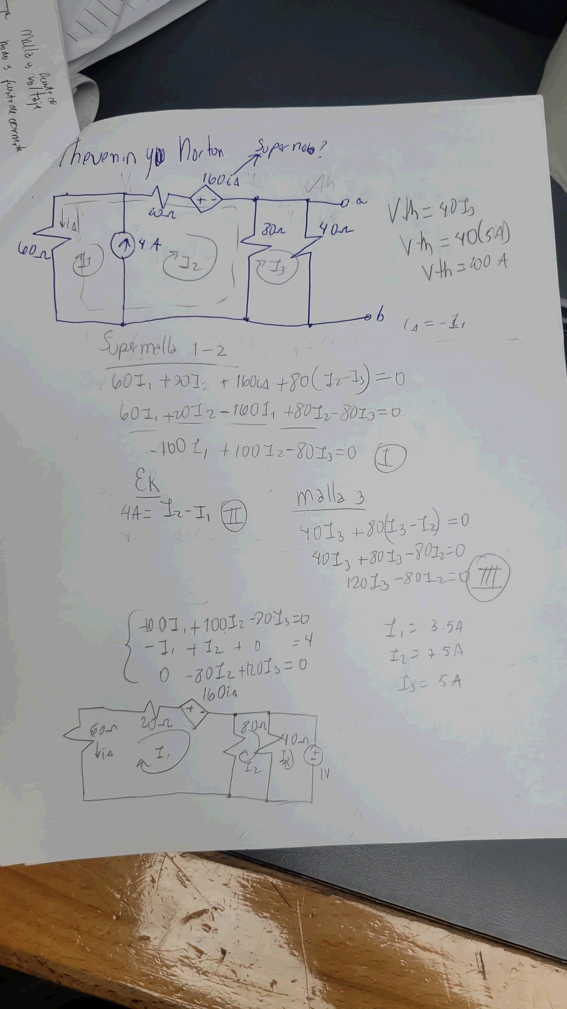 malla s
voltaje
Thevenin y Norton
Supernodo?
160iΔ
Vth
a
+ -
60Ω
iΔ
4A
80Ω
40Ω
I1
I2
I3
b
Vth = 40I3
Vth = 40(5A)
iΔ = -I1
Supermalla 1-2
60I1 + 20I2 + 160iΔ + 80(I2-I3) = 0
60I1 + 20I2 - 160I1 + 80I2 - 80I3 = 0
-100I1 + 100I2 - 80I3 = 0 (I)
EK
4A = I2 - I1 (II)
malla 3
40I3 + 80(I3 - I2) = 0
40I3 + 80I3 - 80I2 = 0
120I3 - 80I2 = 0 (III)
-100I1 + 100I2 - 80I3 = 0
-I1 + I2 + 0 = 4
0 - 80I2 + 120I3 = 0
I1 = 3.5A
I2 = 7.5A
I3 = 5A
160iΔ
60Ω
20Ω
+ -
80Ω
40Ω
iΔ
I1
I2
1V